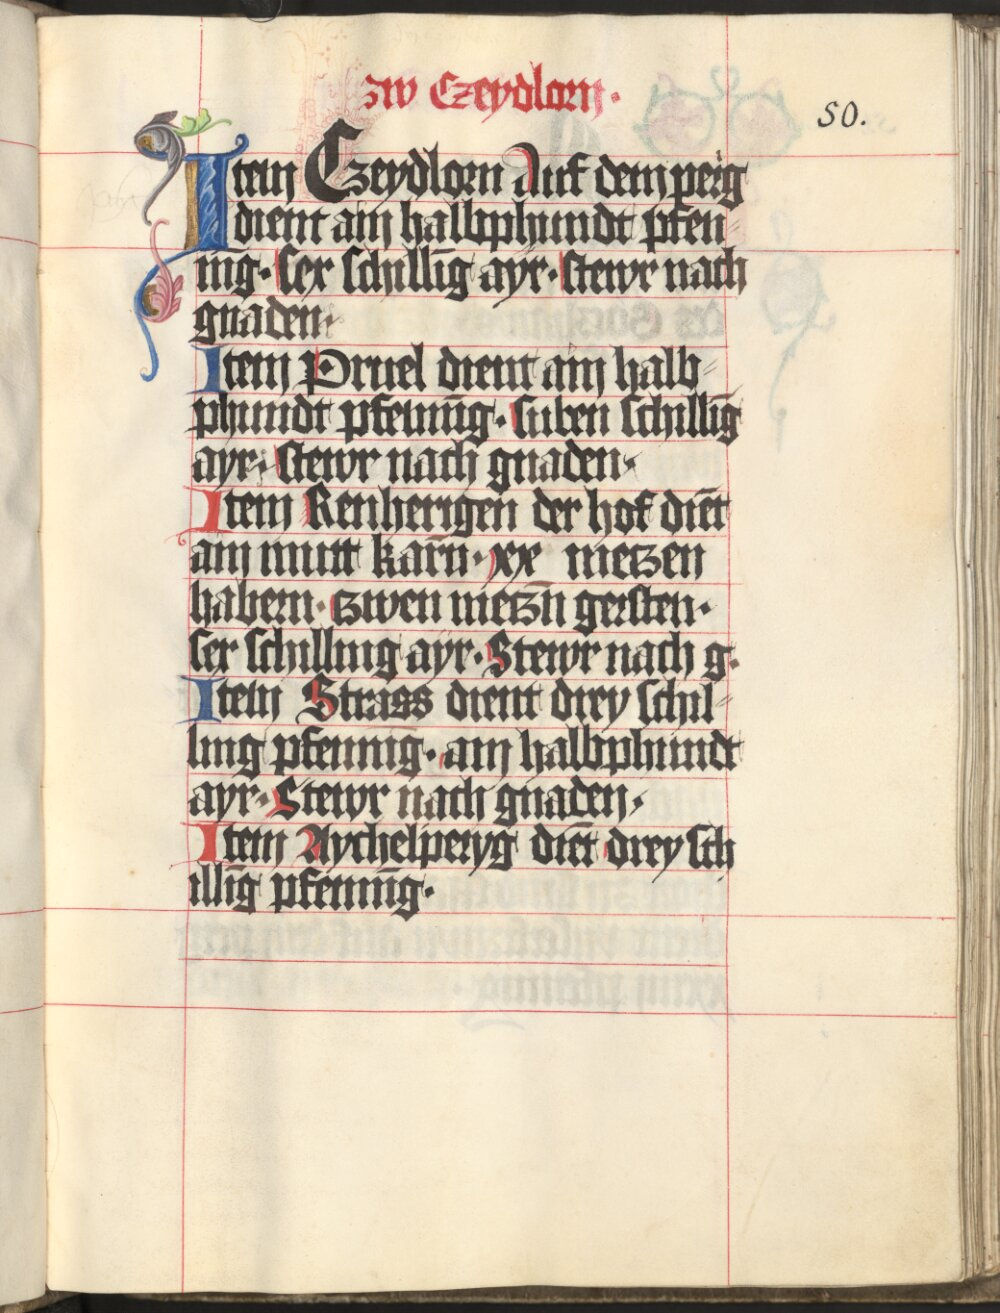 zw Czeydlorn.
50.
Item Czeydlorn Auf dem perg
dient ain halbphundt pfen
nig. sex schilling ayr. stewr nach
gnaden.
Item Pruel dient ain halb
phundt pfenning. siben schilling
ayr. stewr nach gnaden.
Item Renherigen der hof dient
ain mutt karn. xx metzen
habern. zwen metzn gersten.
sex schilling ayr. Stewr nach g.
Item Strass dient drey schil
ling pfennig. ain halbphundt
ayr. Stewr nach gnaden.
Item Aychelperg dient drey sch
illing pfenning.